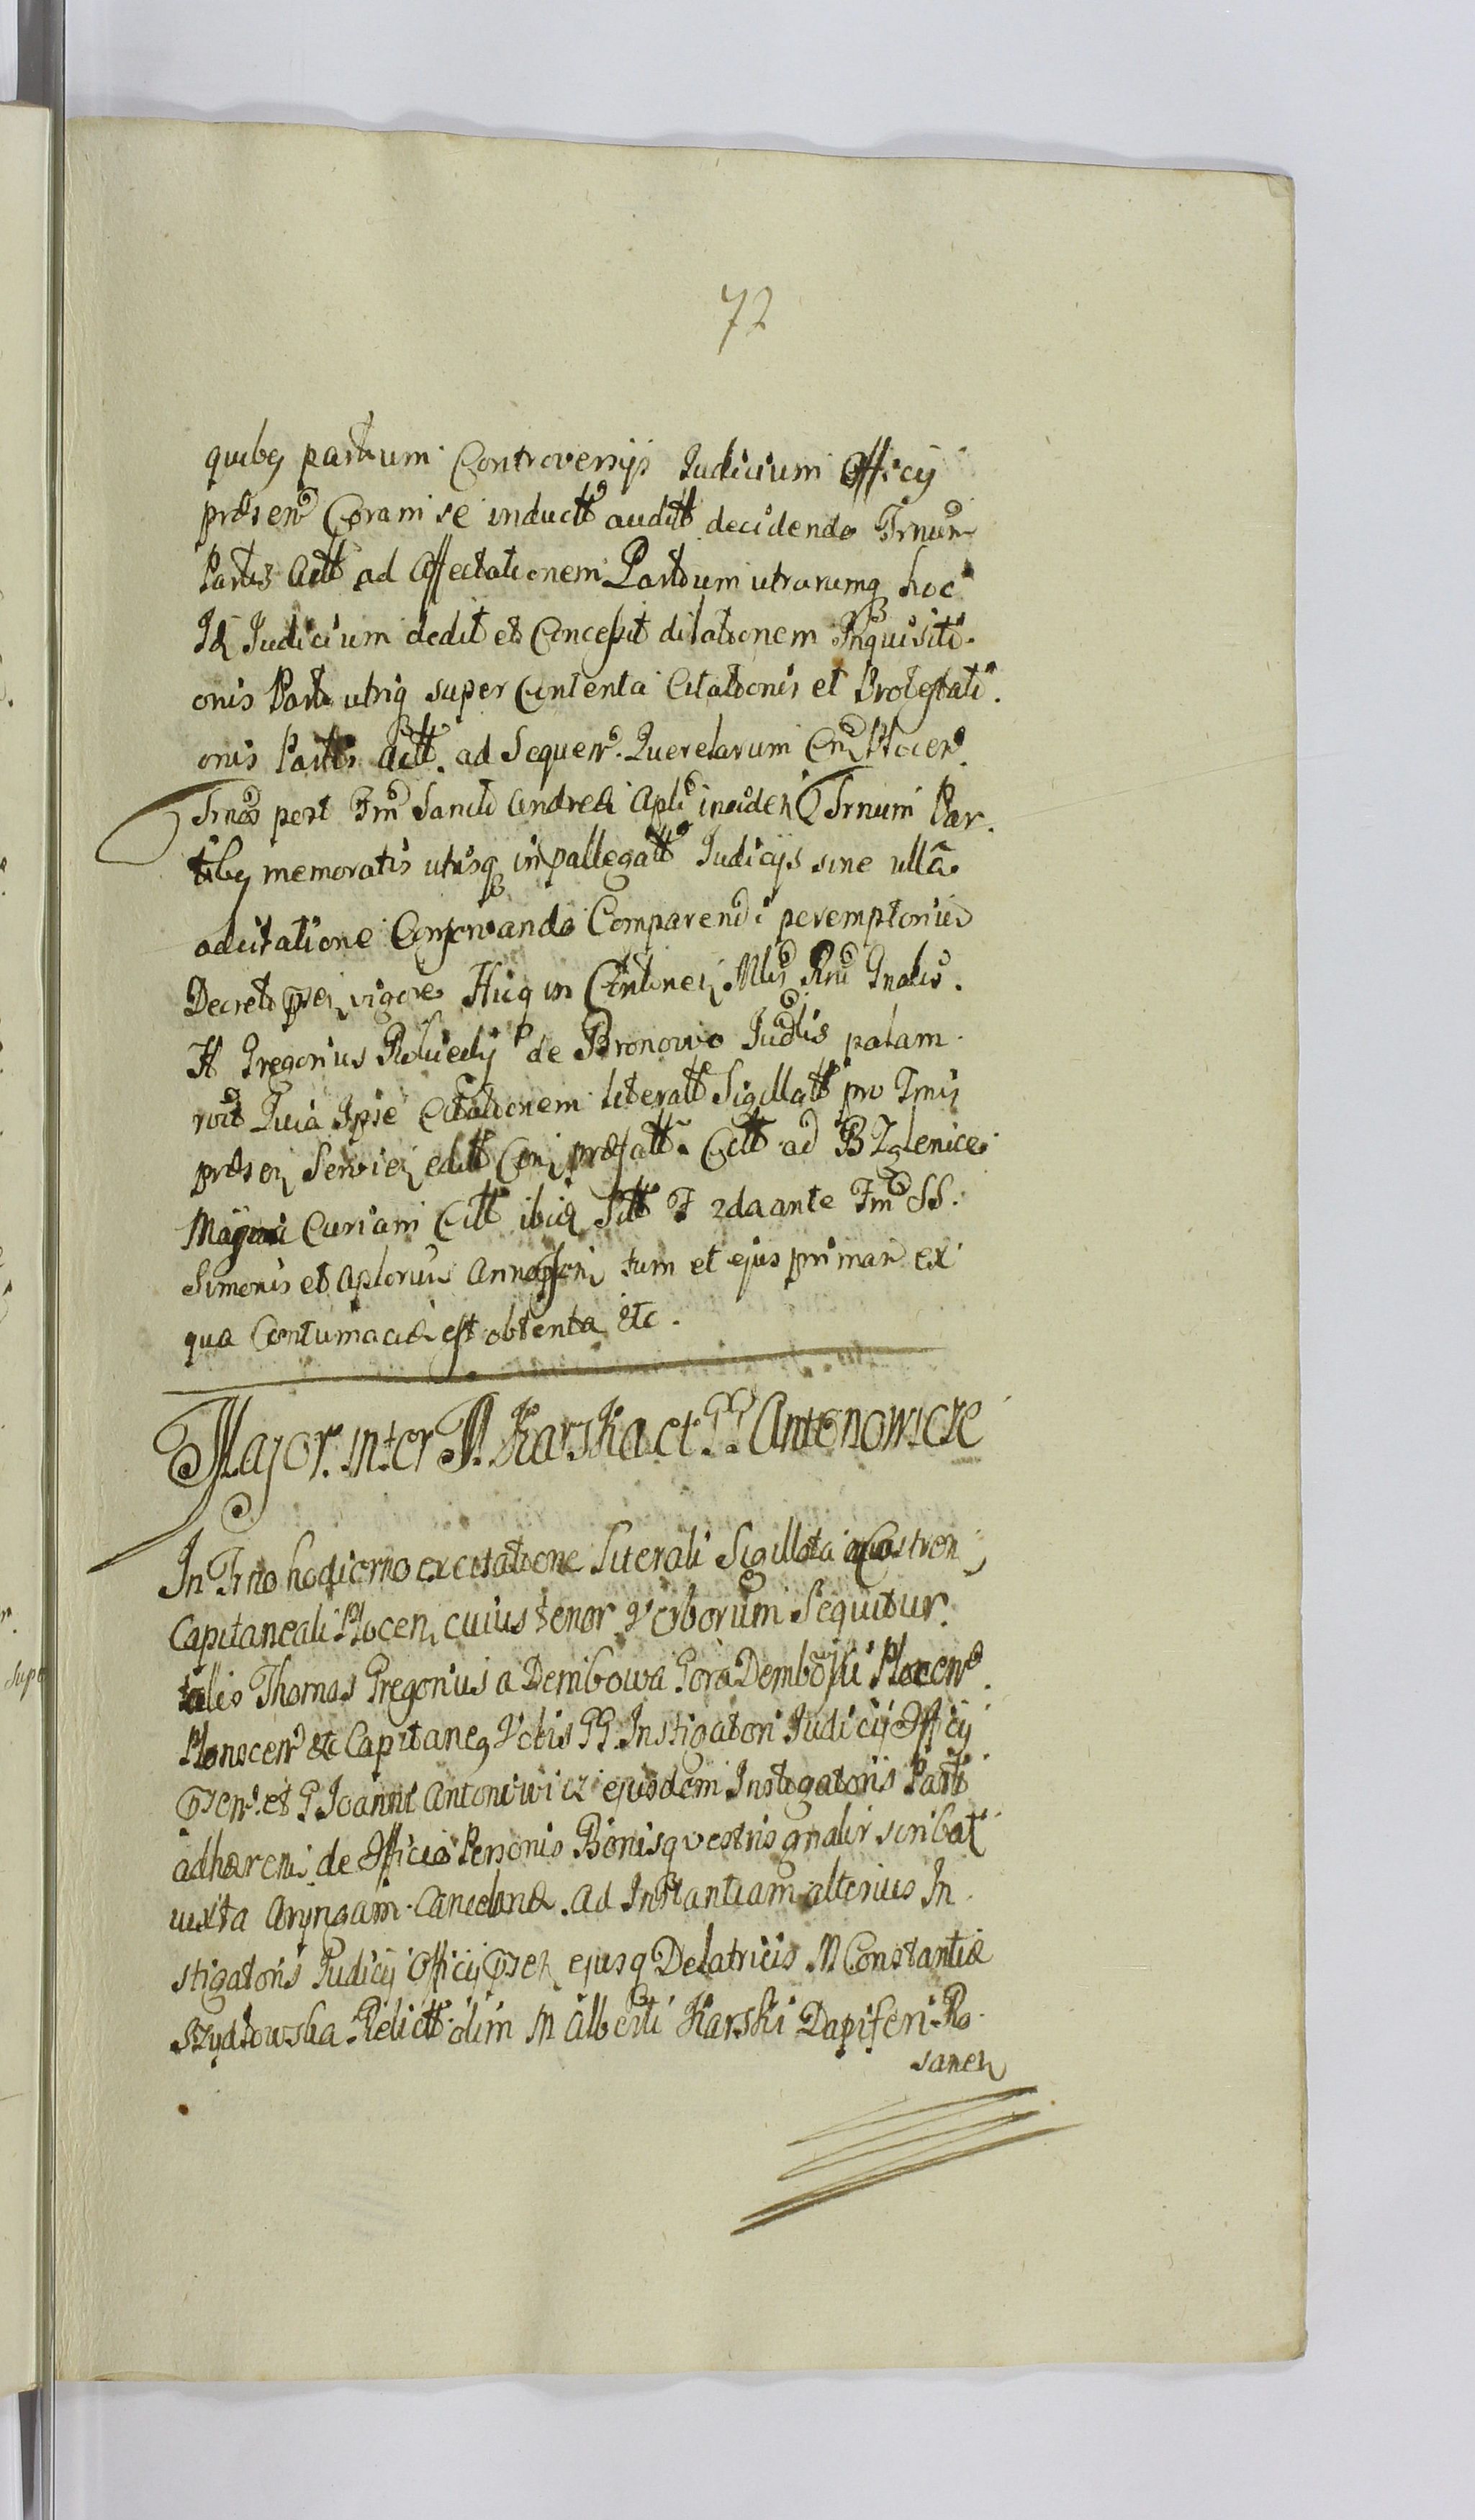 72
quibq partium Controversijs Iudicium Officij
præsen Coram se induct audit decidendo Trnum
Partis Actt ad Affectationem Partium utrarumq hoc
Id Iudicium dedit et Concessit dilationem Inquisiti-
onis Parti utriq super Contenta Citationis et Protestati-
onis Partis Actt. ad Sequen. Querelarum Cn Plocen.
Trnos post Fm Sancti Andreæ Apli inciden Trnum Par-
tibq memoratis utrisq in pallegatt Iudicijs sine ullã
adcitatione Conservando Comparendi peremptorium
Decreti vigore Hicq in Continen. Mlis Rni Gnalis.
H Gregorius de Bronowo Iudlis palam
roit Quia Ipse Citationem literatt Sigillatt pro Trnis
præsen Servien editt præfatt Citt ad B Zglenice
Curiam Citt ibiq Sitt F 2da ante Fm SS.
Simonis et Aplorum Anno tum et ejus primar ex
qua Contumacia est obtenta Etc.
Major. inter M. Karska et GG Antonowicze
In Trno hodierno ex citatione Literali Sigillata Castren
Capitaneali Plocen, cuius tenor Verborum Sequitur.
talis Thomas Gregorius a Dembowa Gora Dembowski Plocen.
Plonscen etc Capitaneq Vobis GG. Instigatori Iudicij Officij
et G Ioanni Antoniwicz ejusdem Instigatoris Partt
adhæren de Officio Personis Bonisq vestris gnalir scribat
iuxta Aryngam Cancellariæ. Ad Instantiam alterius In-
stigatoris Iudicij Officij ejusq Delatricis M Constantiæ
Szydłowska Relictt olim M Alberti Karski Dapiferi Ro-
sanen